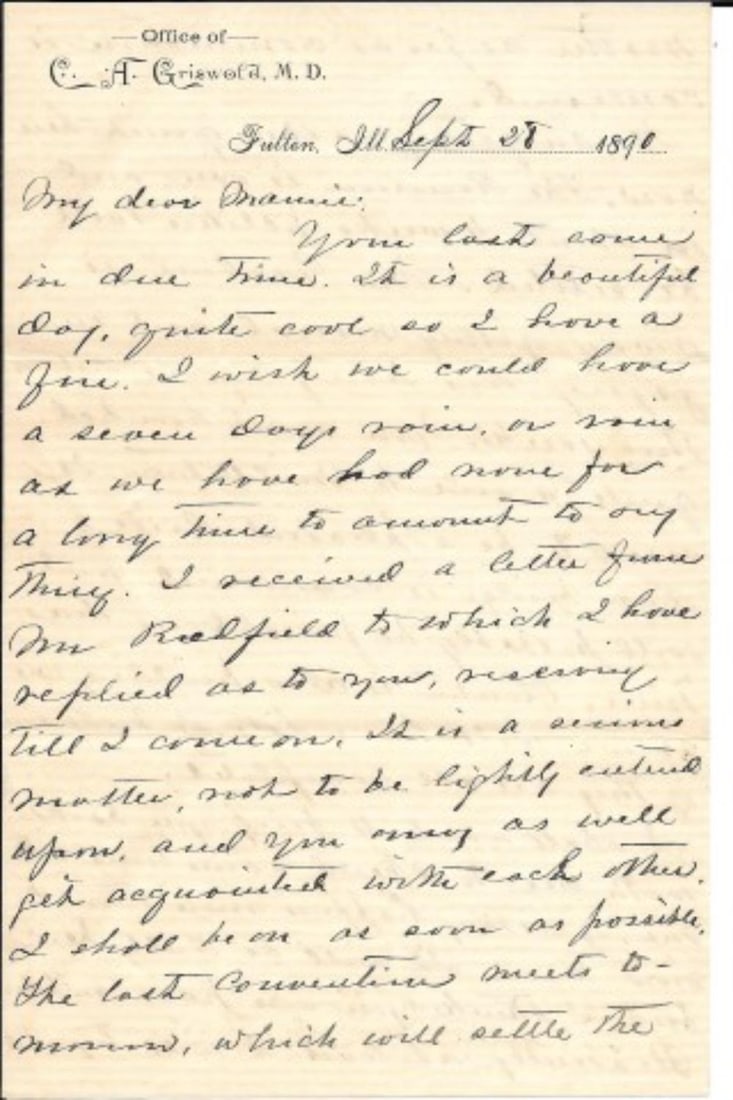 Office of
C. A. Griswold, M. D.
Fulton, Ill. Sept 28 1890
My dear Mamie:
Your last came
in due time. It is a beautiful
day, quite cool so I have a
fire. I wish we could have
a seven days rain, or rain
as we have had none for
a long time to amount to any
thing. I received a letter from
Mr Redfield to which I have
replied as to you, reserving
till I come on. It is a serious
matter, not to be lightly entered
upon, and you may as well
get acquainted with each other.
I shall be on as soon as possible.
The last Convention meets to-
morrow, which will settle the